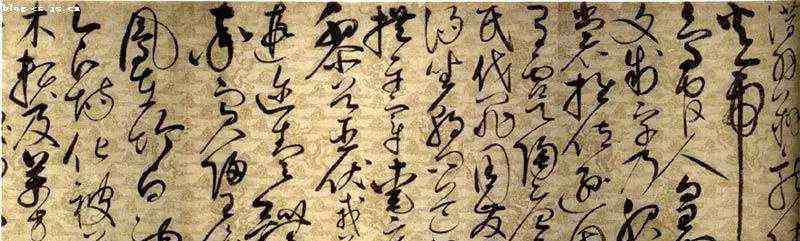 blog.cs.js.cn
潛羽翔龍
火帝
鳥官人皇
文制字乃服
裳推位遜國
有虞陶唐
民伐罪周發
湯坐朝問道
拱平章愛
黎首臣伏戎
遐邇壹體
率賓歸王
鳳在竹白駒
食場化被草
木賴及萬方